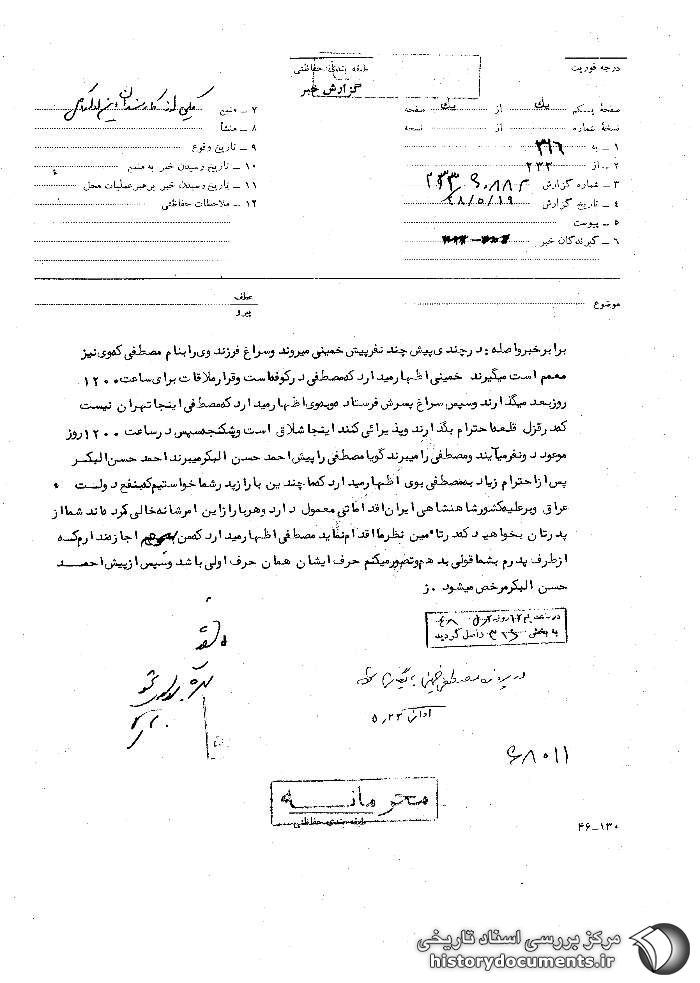 درجه فوریت
طبقه بندی حفاظتی
گزارش خبر
صفحهٔ یکم از یک صفحه
نسخهٔ شماره از نسخه
۱ ــ به ۳۱۶
۲ ــ از ۲۳۲
۳ ــ شماره گزارش
۴ ــ تاریخ گزارش ۴۸/۵/۱۹
۵ ــ پیوست
۶ ــ گیرندگان خبر
۷ ــ منبع یکی از کارمندان
۸ ــ منشأ
۹ ــ تاریخ وقوع
۱۰ ــ تاریخ رسیدن خبر به منبع
۱۱ ــ تاریخ رسیدن خبر برهبر عملیات محل
۱۲ ــ ملاحظات حفاظتی
موضوع
عطف
پیرو
برابر خبر واصله : در چندی پیش چند نفر پیش خمینی میروند و سراغ فرزند وی را بنام مصطفی که وی نیز
معمم است میگیرند خمینی اظهار میدارد که مصطفی در کوفه است و قرار ملاقات برای ساعت ۱۲۰۰
روز بعد میگذارند و سپس سراغ پسرش فرستاده وبوی اظهار میدارد که مصطفی اینجا تهران نیست
که در قزل قلعه احترام بگذارند و پذیرائی کنند اینجا شلاق است و شکنجه سپس در ساعت ۱۲۰۰ روز
موعود دو نفر میآیند و مصطفی را میبرند گویا مصطفی را پیش احمد حسن البکر میبرند احمد حسن البکر
پس از احترام زیاد به مصطفی بوی اظهار میدارد که ما چندین بار از پدر شما خواستیم که بنفع دولت
عراق و برعلیه کشور شاهنشاهی ایران اقداماتی معمول دارد و هر بار از این امر شانه خالی کرده اند شما از
پدرتان بخواهید که در تأمین نظر ما اقدام نماید مصطفی اظهار میدارد که من اجازه ندارم که
از طرف پدرم بشما قولی بدهم و تصور میکنم حرف ایشان همان حرف اولی باشد و سپس از پیش احمد
حسن البکر مرخص میشود . ز
به بخش ۳۱۶ داصل گردید
در پرونده مصطفی خمینی بایگانی شود
۵/۲۲
۶۸۰۱۱
محرمانه
طبقه بندی حفاظتی
۴۶-۱۳۰
مرکز بررسی اسناد تاریخی
historydocuments.ir